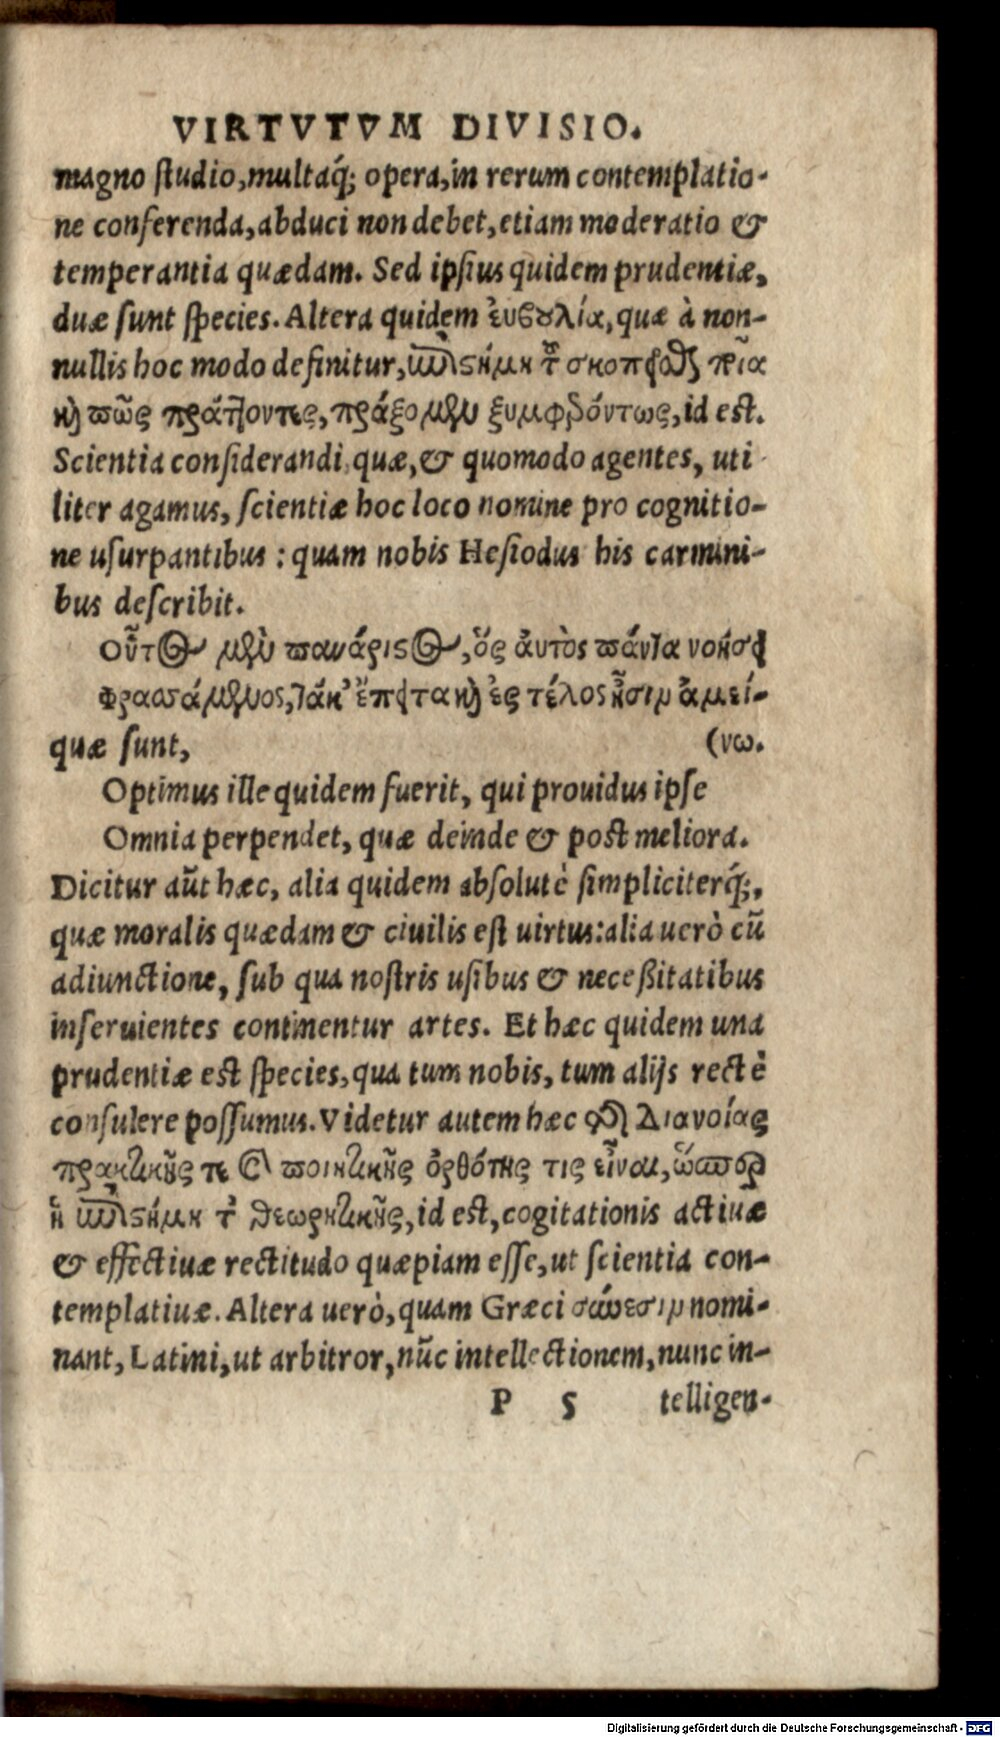 VIRTVTVM DIVISIO.
magno studio, multaq́; opera, in rerum contemplatio-
ne conferenda, abduci non debet, etiam moderatio &
temperantia quædam. Sed ipsius quidem prudentiæ,
duæ sunt species. Altera quidem ἐυβουλία, quæ à non-
nullis hoc modo definitur, ἐπιστήμη τοῦ σκοπεῖσθαι
καὶ πῶς πράττοντες, πράξομεν ξυμφερόντως, id est.
Scientia considerandi, quæ, & quomodo agentes, uti
liter agamus, scientiæ hoc loco nomine pro cognitio-
ne usurpantibus: quam nobis Hesiodus his carmini-
bus describit.
Οὗτος μὲν πανάριστος, ὅς ἀυτὸς πάντα νοήσει
Φρασσάμενος, τάκ' ἔπειτα καὶ ἐς τέλος ᾖσιν ἀμεί-
quæ sunt, (νω.
Optimus ille quidem fuerit, qui prouidus ipse
Omnia perpendet, quæ deinde & post meliora.
Dicitur aũt hæc, alia quidem absolutè simpliciterq́;,
quæ moralis quædam & ciuilis est uirtus: alia uerò cũ
adiunctione, sub qua nostris usibus & necessitatibus
inseruientes continentur artes. Et hæc quidem una
prudentiæ est species, qua tum nobis, tum alijs rectè
consulere possumus. Videtur autem hæc διανοίας
πρακτικῆς τε καὶ ποιητικῆς ὀρθότης τις εἶναι, ὥσπερ
ἡ ἐπιστήμη τῆς θεωρητικῆς, id est, cogitationis actiuæ
& effectiuæ rectitudo quæpiam esse, ut scientia con-
templatiuæ. Altera uerò, quam Græci σύνεσιν nomi-
nant, Latini, ut arbitror, nũc intellectionem, nunc in-
P 5 telligen-
Digitalisierung gefördert durch die Deutsche Forschungsgemeinschaft - DFG